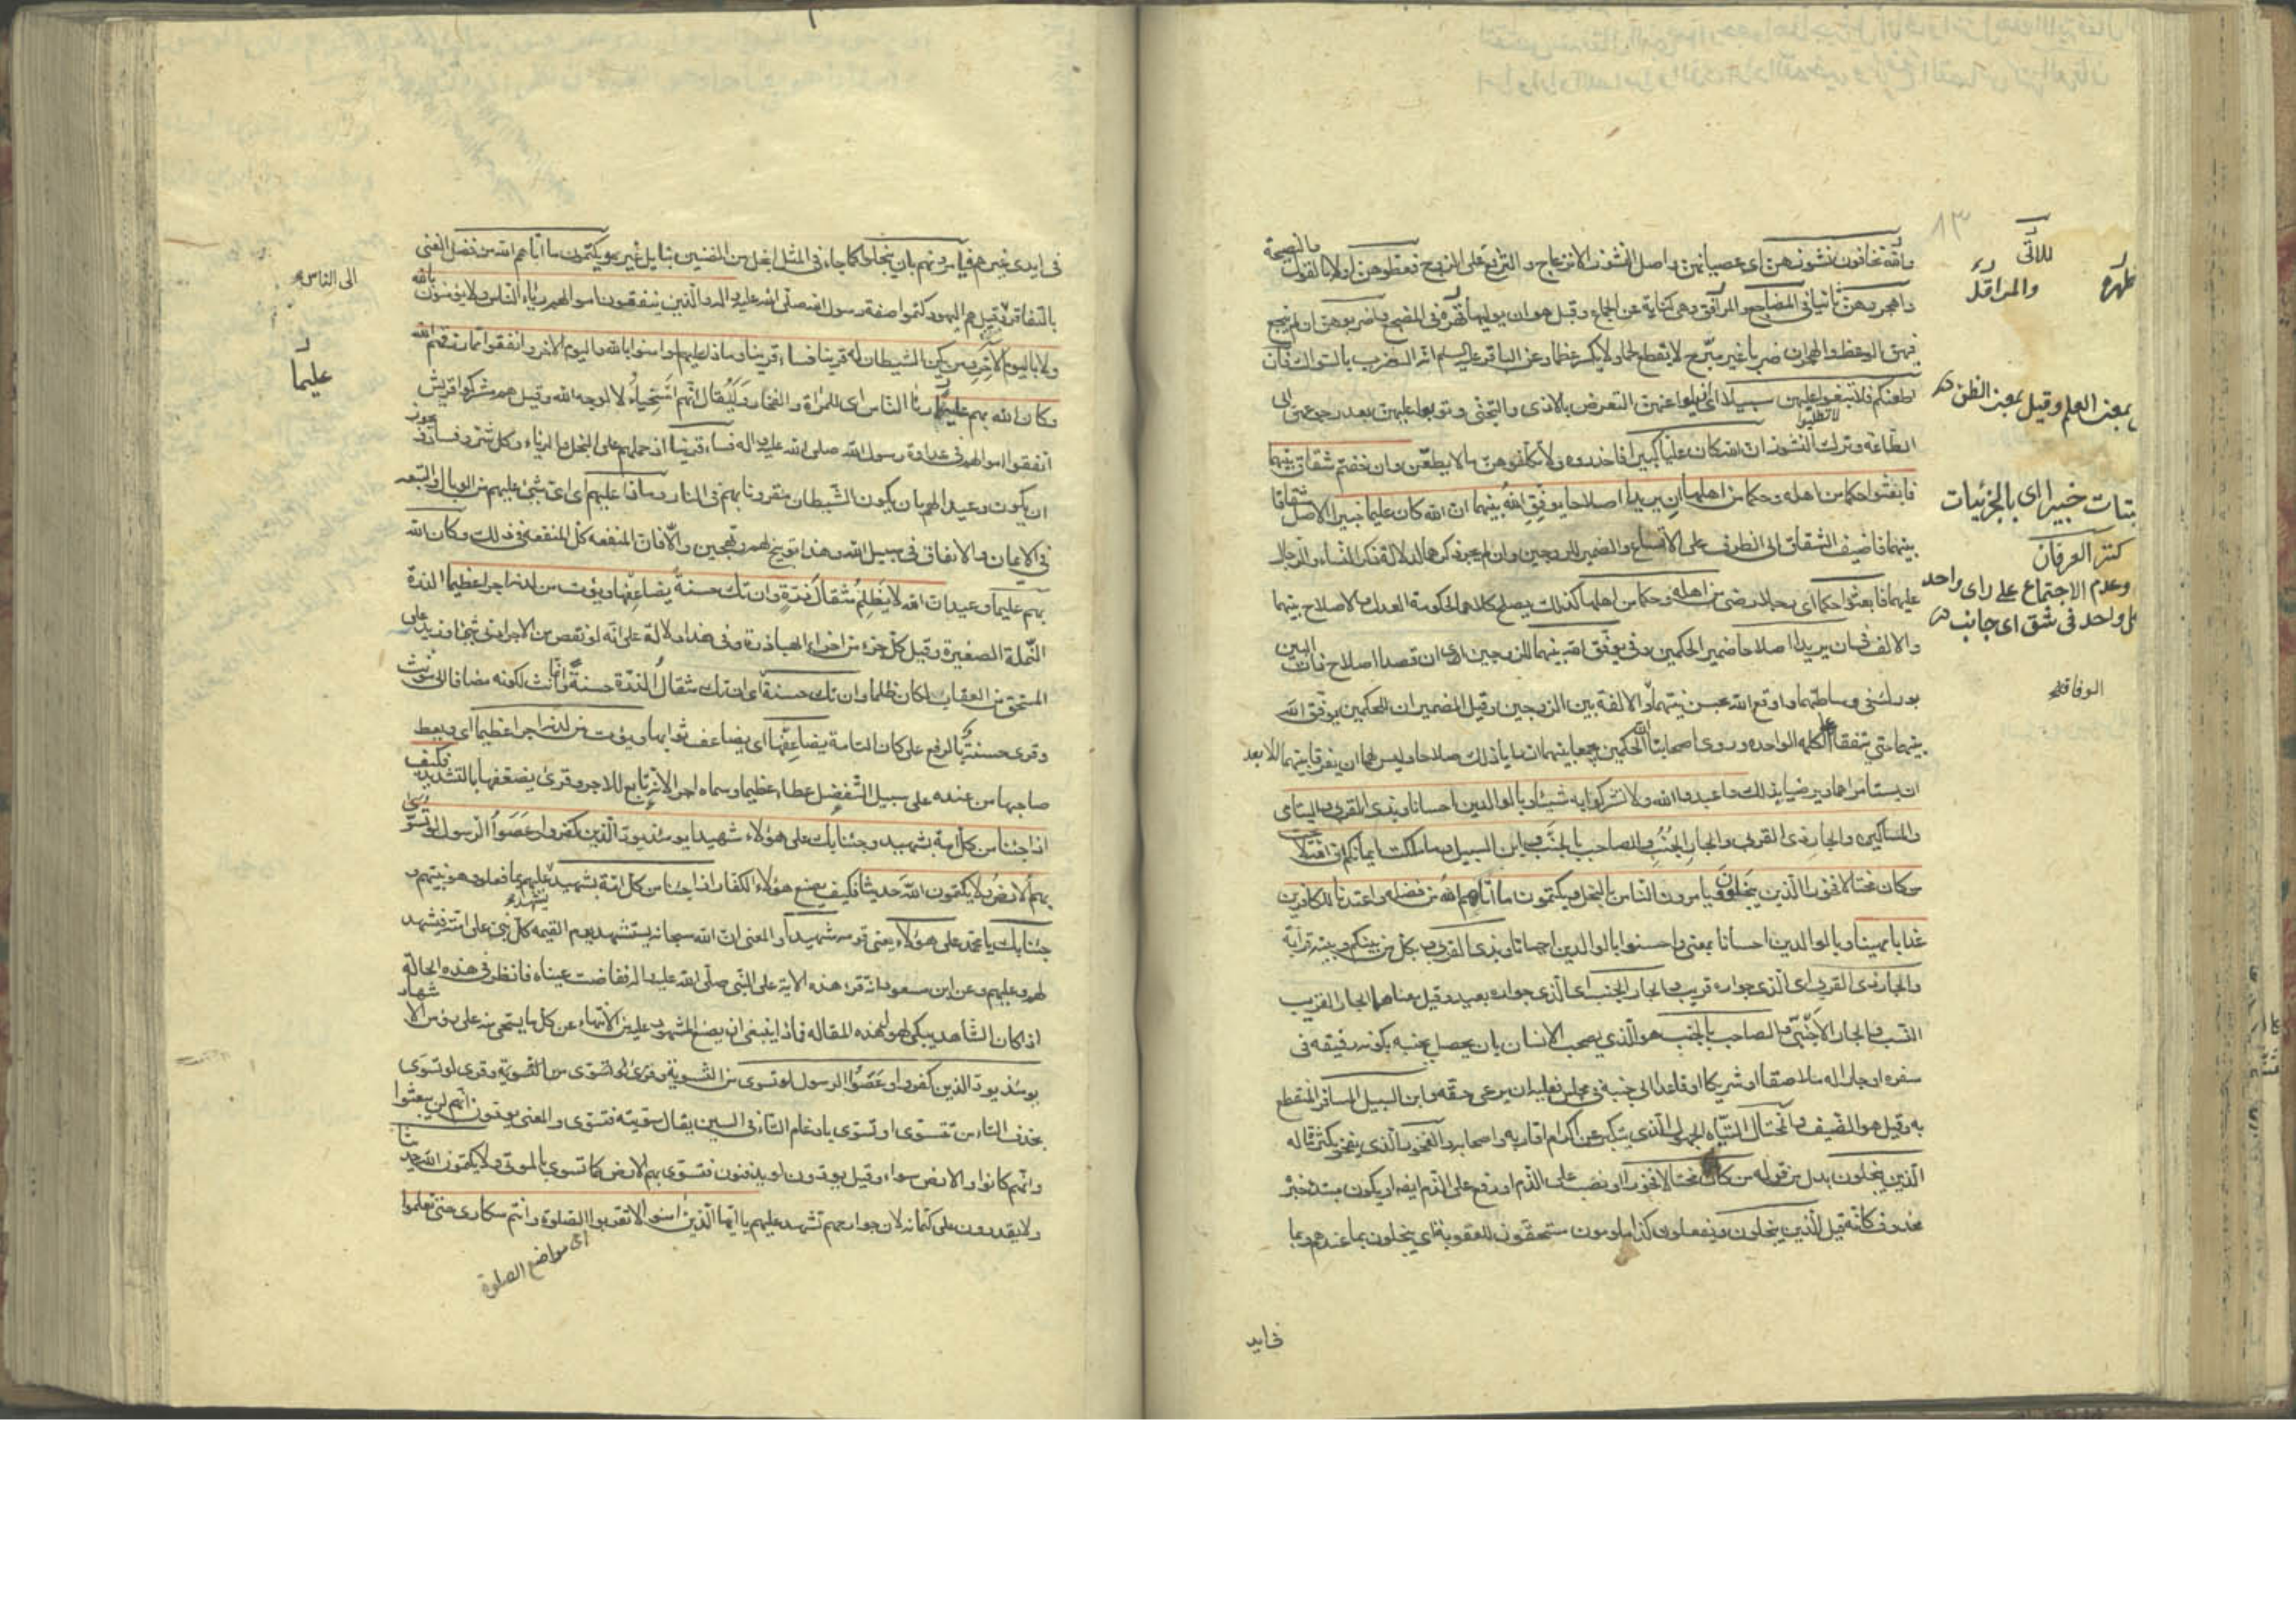 واللاتي تخافون نشوزهن اى عصيانهن واصل النشوز الانزعاج والترفع على الزوج فعظوهن اولا بالقول والنصيحة
واهجروهن ثانيا فى المضاجع والمراقد وهى كناية عن الجماع وقيل هو ان يوليها ظهره فى المضجع واضربوهن ان لم ينجع
فيهن الوعظ والهجران ضربا غير مبرح لا يقطع لحما ولا يكسر عظما وعن الباقر عليه السلم انه الضرب بالسواك فان
اطعنكم فلا تبغوا عليهن سبيلا اى ازيلوا عنهن التعرض بالاذى والتجنى وتوبوا عليهن بعد رجوعهن الى
الطاعة وترك النشوز ان الله كان عليا كبيرا فاحذروه ولا تكلفوهن ما لا يطقن وان خفتم شقاق بينهما
فابعثوا حكما من اهله وحكما من اهلها ان يريدا اصلاحا يوفق الله بينهما ان الله كان عليما خبيرا الاصل شقاقا
بينهما فاضيف الشقاق الى الظرف على الاتساع والضمير للزوجين وان لم يجر ذكرهما لدلالة ذكر النساء والرجال
عليهما فابعثوا حكما اى رجلا رضى من اهله وحكما من اهلها كذلك يصلح كلاهما لحكومة العدل والاصلاح بينهما
والالف فى ان يريدا اصلاحا ضمير الحكمين وفى يوفق الله بينهما للزوجين اى ان قصدا اصلاح ذات البين
بورك فى وساطتهما واوقع الله بحسن نيتهما الالفة بين الزوجين وقيل الضميران للحكمين يوفق الله
بينهما حتى يتفقا على الكلمة الواحدة وروى اصحابنا ان الحكمين يجمعا بينهما ان رايا ذلك صلاحا وليس لهما ان يفرقا بينهما الا بعد
ان يستامراهما ويرضيا بذلك واعبدوا الله ولا تشركوا به شيئا وبالوالدين احسانا وبذى القربى واليتامى
والمساكين والجار ذى القربى والجار الجنب والصاحب بالجنب وابن السبيل وما ملكت ايمانكم ان الله لا يحب
من كان مختالا فخورا الذين يبخلون ويامرون الناس بالبخل ويكتمون ما اتاهم الله من فضله واعتدنا للكافرين
عذابا مهينا وبالوالدين احسانا بمعنى واحسنوا بالوالدين احسانا وبذى القربى وبكل من بينكم وبينه قرابة
والجار ذى القربى اى الذى جواره قريب والجار الجنب اى الذى جواره بعيد وقيل معناهما الجار القريب
النسب والجار الاجنبى والصاحب بالجنب هو الذى يصحب الانسان بان يحصل بجنبه بكونه رفيقه فى
سفره او جارا له ملاصقا او شريكا او قاعدا الى جنبه فى مجلس فعليه ان يرعى حقه وابن السبيل المسافر المنقطع
به وقيل هو الضيف والمختال التياه الجهول الذى يتكبر عن اكرام اقاربه واصحابه والفخور الذى يفخر بكثرة ماله
الذين يبخلون بدل من قوله من كان مختالا فخورا او نصب على الذم او رفع على الذم ايضا ويكون مبتدا خبره
محذوف كانه قيل الذين يبخلون ويفعلون كذا ملومون مستحقون للعقوبة اى يبخلون بما عندهم وبما
فى ايد
للاتى
ظهره
والمراقد
بمعنى العلم وقيل بمعنى الظن
خبيرا اى بالجزئيات
كنز العرفان
وعدم الاجتماع على راى واحد
كل واحد فى شق اى جانب
الوفاق
فى ايدى غيرهم فيامرونهم بان يبخلوا كما جاء فى المثل ابخل من الضنين بنايل غيره ويكتمون ما اتاهم الله من فضل الغنى
بالتفاقر وقيل هم اليهود كتموا صفة رسول الله صلى الله عليه واله والذين ينفقون اموالهم رئاء الناس ولا يؤمنون بالله
ولا باليوم الاخر ومن يكن الشيطان له قرينا فساء قرينا وماذا عليهم لو امنوا بالله واليوم الاخر وانفقوا مما رزقهم الله
وكان الله بهم عليما رئاء الناس اى للمراة والفخار وليقال انهم اسخياء لا لوجه الله وقيل هم مشركوا قريش
انفقوا اموالهم فى عداوة رسول الله صلى الله عليه واله فساء قرينا اذ حملهم على البخل والرياء وكل شر وفساد ويجوز
ان يكون وعيدا لهم بان يكون الشيطان مقرونا بهم فى النار وماذا عليهم اى اى شىء عليهم من الوبال والتبعه
فى الايمان والانفاق فى سبيل الله وهذا توبيخ لهم وتهجين والا فان المنفعه كل المنفعه فى ذلك وكان الله
بهم عليما وعيد ان الله لا يظلم مثقال ذرة وان تك حسنة يضاعفها ويؤت من لدنه اجرا عظيما الذرة
النملة الصغيرة وقيل كل جزء من اجزاء الهباء ذرة وفى هذا دلالة على انه لو نقص من الاجر ادنى شىء او زيد على
المستحق من العقاب لكان ظلما وان تك حسنة اى ان تك مثقال الذرة حسنة وانما انث لكونه مضافا الى مونث
وقرىء حسنة بالرفع على كان التامة يضاعفها اى يضاعف ثوابها ويؤت من لدنه اجرا عظيما اى ويعط
صاحبها من عنده على سبيل التفضل عطاء عظيما وسماه اجرا لانه تابع للاجر وقرىء يضعفها بالتشديد فكيف
اذا جئنا من كل امة بشهيد وجئنا بك على هؤلاء شهيدا يومئذ يود الذين كفروا وعصوا الرسول لو تسوى
بهم الارض ولا يكتمون الله حديثا فكيف يصنع هؤلاء الكفار اذا جئنا من كل امة بشهيد يشهد عليهم بما فعلوا وهو نبيهم و
جئنا بك يا محمد على هؤلاء يعنى قومه شهيدا والمعنى ان الله سبحانه يستشهد يوم القيمه كل نبى على امته فيشهد
لهم وعليهم وعن ابن مسعود انه قرء هذه الاية على النبى صلى الله عليه واله ففاضت عيناه فانظر فى هذه الحالة
اذا كان الشاهد يبكى لهول هذه المقالة فماذا ينبغى ان يصنع المشهود عليه من الانتهاء عن كل ما يستحيى منه على رؤس الاشهاد
يومئذ يود الذين كفروا وعصوا الرسول لو تسوى من التسوية وقرىء لو تسوى
بحذف التاء من تتسوى او تسوى بادغام التاء فى السين يقال سويته فتسوى والمعنى يودون انهم لن يبعثوا
وانهم كانوا والارض سواء وقيل يودون لو يدفنون فتسوى بهم الارض كما تسوى بالموتى ولا يكتمون الله حديثا
ولا يقدرون على كتمانه لان جوارحهم تشهد عليهم يا ايها الذين امنوا لا تقربوا الصلوة وانتم سكارى حتى تعلموا
اى مواضع الصلوة
الى الناس
عليما